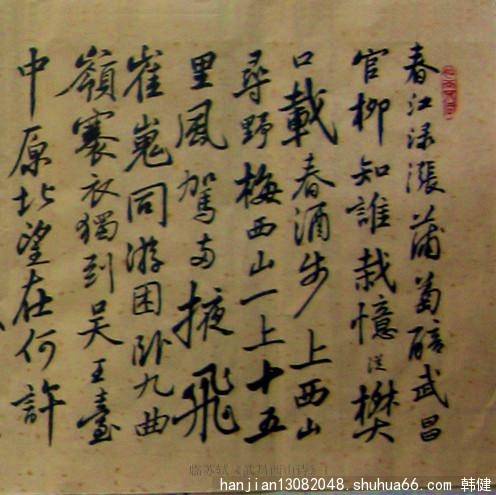 春江渌漲蒲萄醅武昌
官柳知誰栽憶從樊
口載春酒步上西山
尋野梅西山一上十五
里風駕兩掖飛
崔嵬同游困卧九曲
嶺褰衣獨到吴王臺
中原北望在何許
临苏轼《武昌西山诗》1
hanjian13082048.shuhua66.com 韩健